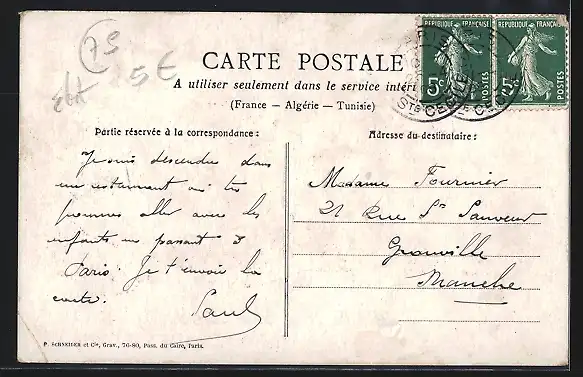 75
5€
CARTE POSTALE
A utiliser seulement dans le service intéri
(France — Algérie — Tunisie)
REPUBLIQUE FRANÇAISE
5c
POSTES
REPUBLIQUE FRANÇAISE
5c
POSTES
STE CECILE
Partie réservée à la correspondance :
Adresse du destinataire :
Je suis descendu dans
un restaurant où tes
femmes aller avec les
enfants en passant à
Paris. Je t'envoie la
carte.
Paul
Madame Fournier
21 Rue St Sauveur
Granville
Manche
P. SCHNEIDER et Cie, Grav., 76-80, Pass. du Caire, Paris.